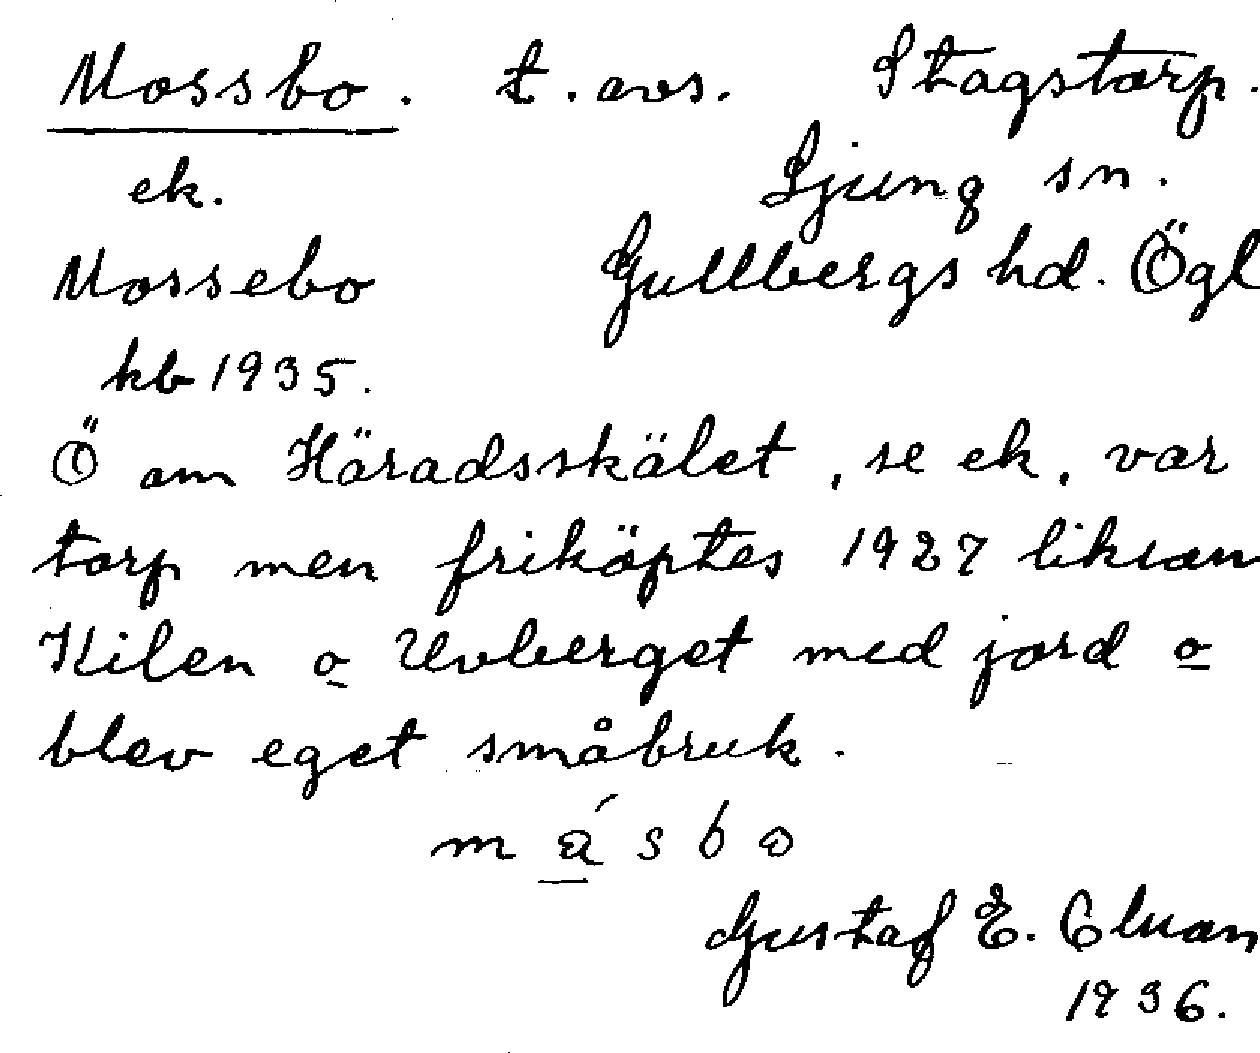 Mossbo. t. avs. Stagstorp.
ek. Ljung sn.
Mossebo Gullbergs hd. Ögl
kb 1935.
Ö om Häradsskälet, se ek, var
torp men friköptes 1927 liksom
Kilen o Uvberget med jord o
blev eget småbruk.
Gustaf E.
1936.